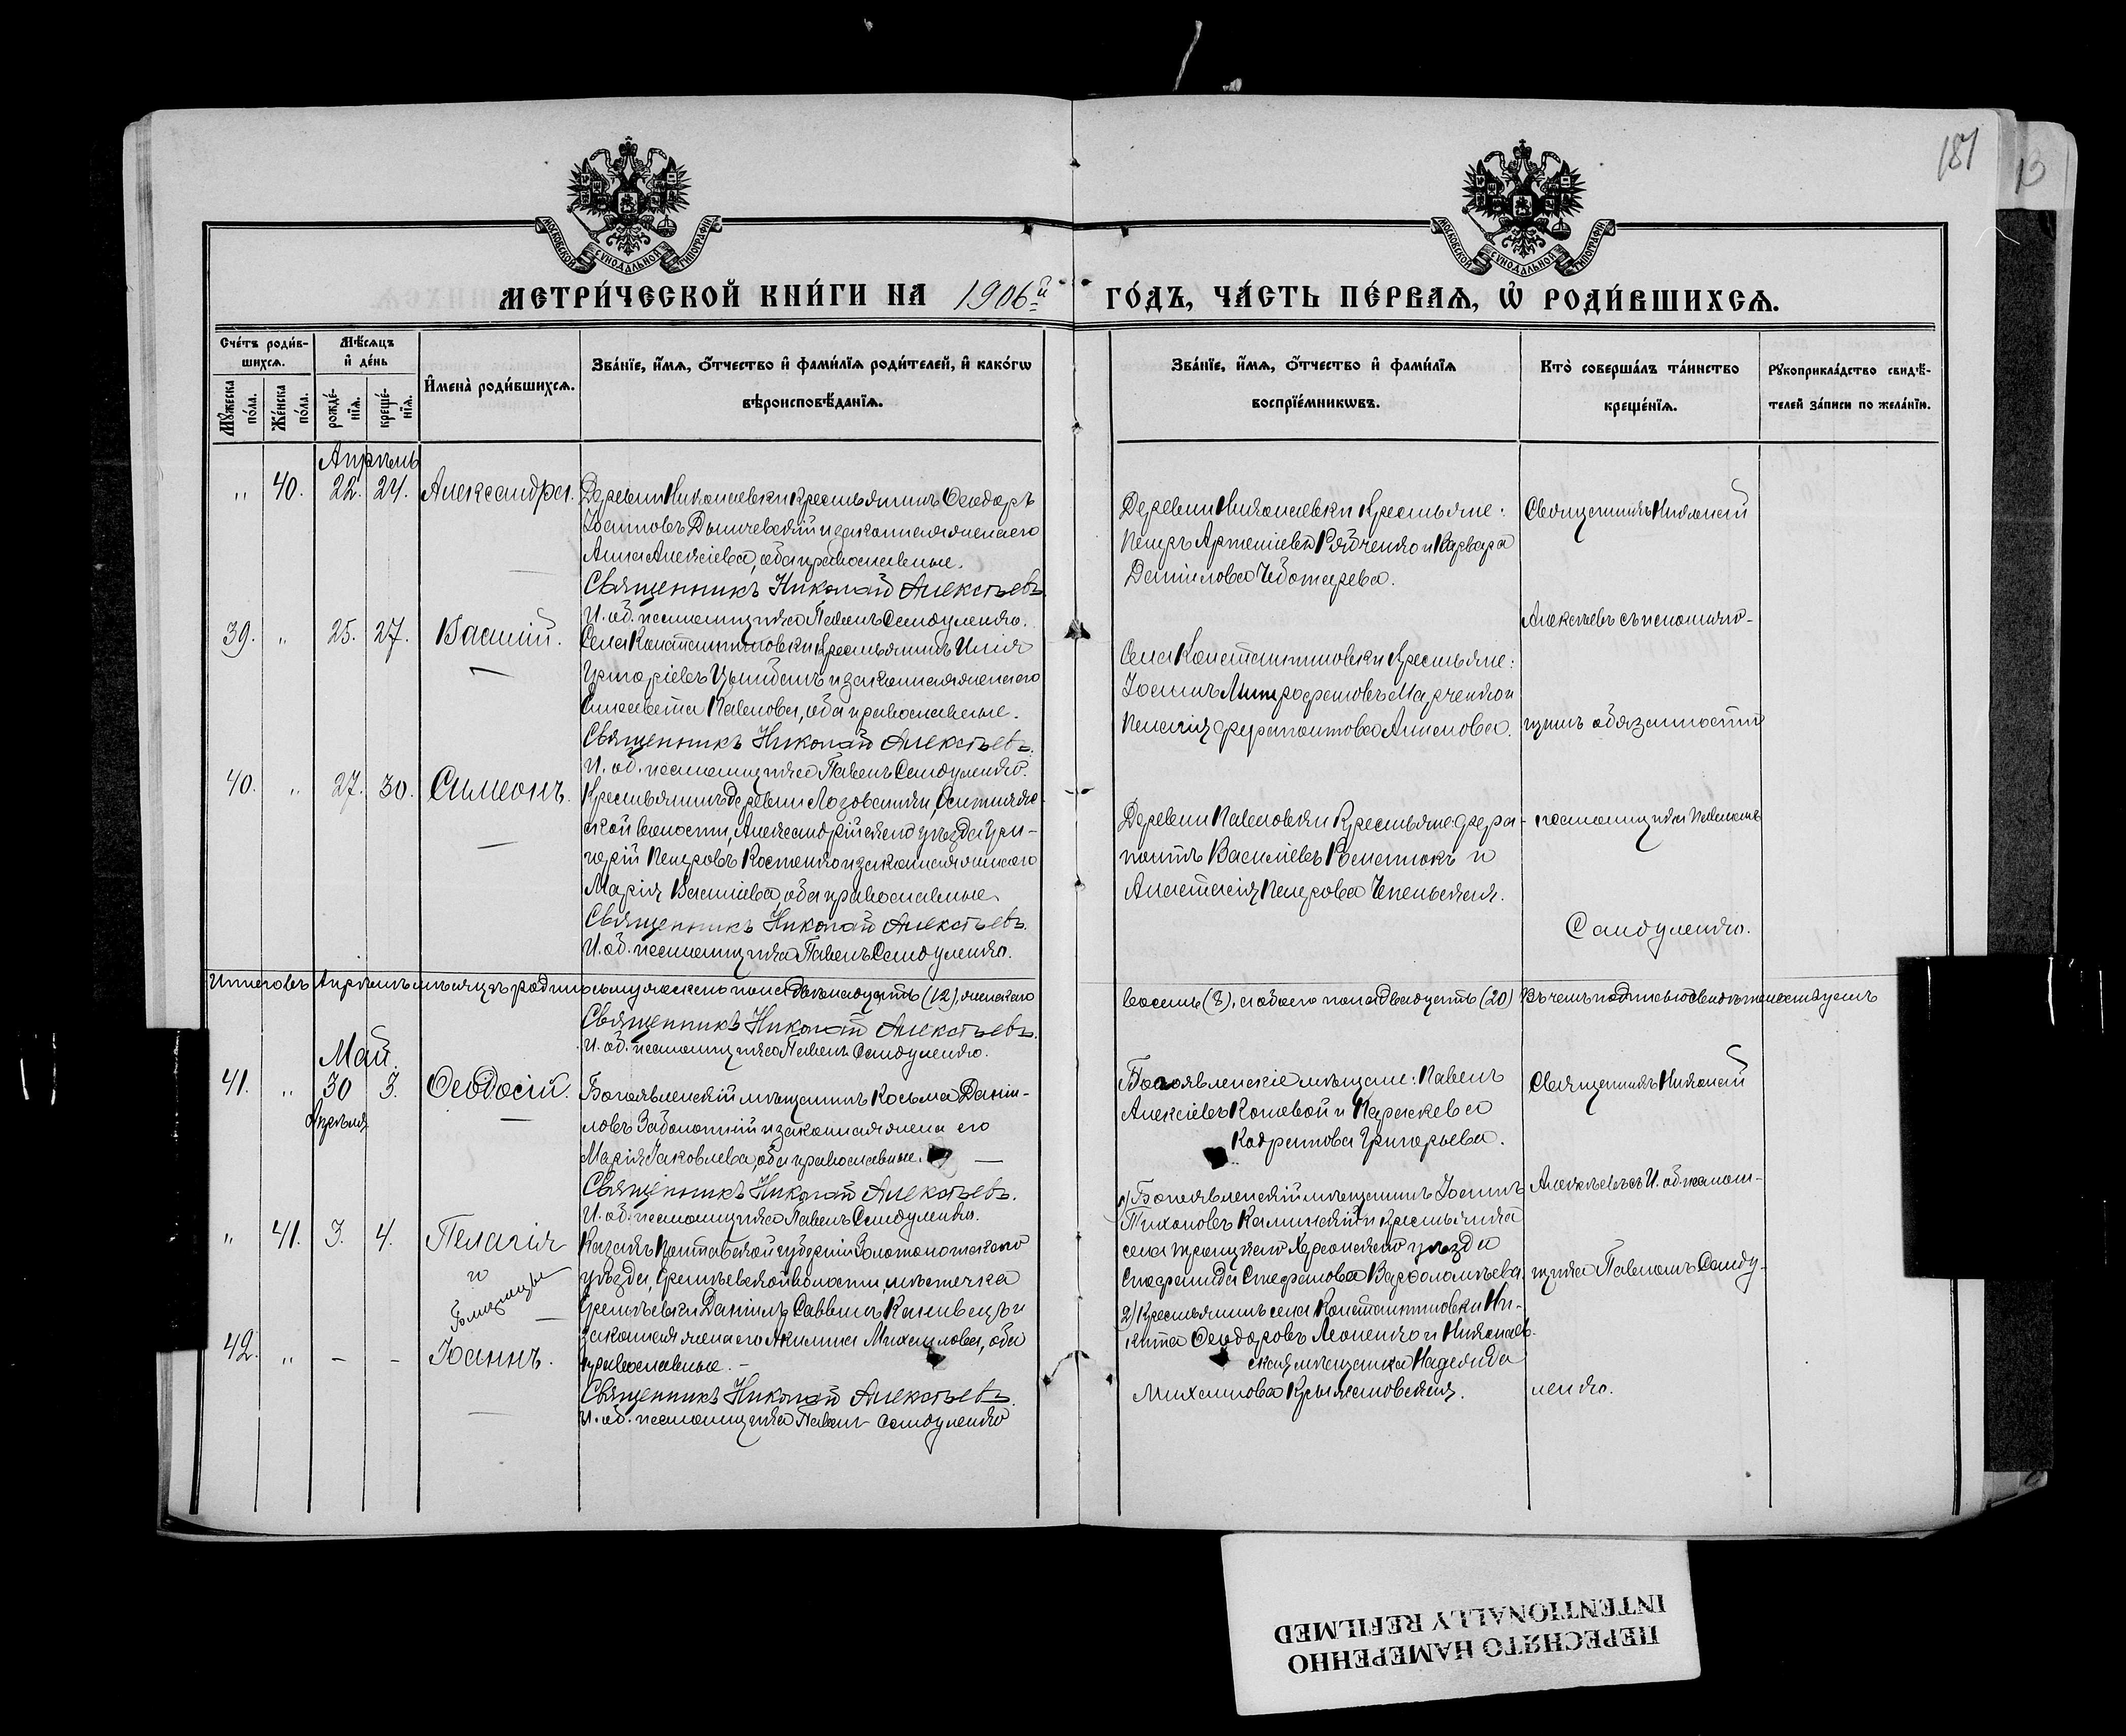 181
13
МОСКОВСКОЙ СѴНОДАЛЬНОЙ ТИПОГРАФІИ
МОСКОВСКОЙ СѴНОДАЛЬНОЙ ТИПОГРАФІИ
МЕТРИ́ЧЕСКОЙ КНИ́ГИ НА 1906й
ГО́ДЪ, ЧА́СТЬ ПЕ́РВАѦ, Ѡ҆ РОДИ́ВШИХСѦ.
Сче́тъ роди́в-
шихсѧ.
Мꙋ́жеска по́ла.
Же́нска по́ла.
Мѣ́сѧцъ
и҆ де́нь
рожде́-нїѧ.
креще́-нїѧ.
И҆мена̀ роди́вшихсѧ.
Зва́нїе, и҆́мѧ, ѻ҆́тчество и҆ фами́лїѧ роди́телей, и҆ како́гѡ
вѣроисповѣ́данїѧ.
Зва́нїе, и҆́мѧ, ѻ҆́тчество и҆ фами́лїѧ
воспрїе́мникѡвъ.
Кто̀ соверша́лъ та́инство
креще́нїѧ.
Рꙋкоприкла́дство свидѣ́-
телей за́писи по жела́нїю.
Апрѣль
" 40. 22. 24. Александра.
Деревни Николаевки крестьянинъ Ѳеодоръ
Іоанновъ Дышчевскій и законная жена его
Анна Алексіева, оба православные.
Священникъ Николай Алексѣевъ.
И. об. псаломщика Павелъ Сандуленко.
Деревни Николаевки крестьяне:
Петръ Артеміевъ Рябченко и Варвара
Даніилова Чеботарева.
Священникъ Николай
39. " 25. 27. Василій.
Села Константиновки крестьянинъ Илія
Григоріевъ Цымбалъ и законная жена его
Елисавета Павлова, оба православные.
Священникъ Николай Алексѣевъ.
И. об. псаломщика Павелъ Сандуленко.
Села Константиновки крестьяне:
Іоаннъ Митрофановъ Марченко и
Пелагія Ферапонтова
Алексѣевъ съ исполняю-
щимъ обязанности
40. " 27. 30. Симеонъ.
Крестьянинъ деревни Лозоватки,
ской волости, Александрійскаго уѣзда Гри-
горій Петровъ Костенко и законная жена его
Марія Василіева, оба православные.
Священникъ Николай Алексѣевъ.
И. об. псаломщика Павелъ Сандуленко.
Деревни Павловки крестьяне: Фера-
понтъ Василіевъ и
Анастасія Петрова Чепельская.
псаломщика Павломъ
Сандуленко.
Итого въ Апрѣлѣ мѣсяцѣ родилось мужескаго пола двѣнадцать (12), женскаго
восемь (8), а обоего пола двадцать (20) въ чемъ подписью свидѣтельствуемъ
Священникъ Николай Алексѣевъ.
И. об. псаломщика Павелъ Сандуленко.
Май.
41. " 30 3. Ѳеодосій.
Апрѣля
Богоявленскій мѣщанинъ Косьма Даніи-
ловъ Заболотній и законная жена его
Марія Іаковлева, оба православные.
Священникъ Николай Алексѣевъ.
И. об. псаломщика Павелъ Сандуленко.
Богоявленскіе мѣщане: Павелъ
Алексіевъ Кошевой и Параскева
Кодратова Григорьева.
Священникъ Николай
" 41. 3. 4. Пелагія
и
Близнецы
42. " - - Іоаннъ.
Казакъ Полтавской губерніи Золотоношскаго
уѣзда, Еремѣевской волости, мѣстечка
Еремѣевки Даніилъ Саввинъ Канивецъ и
законная жена его Акилина Михаилова, оба
православные. -
Священникъ Николай Алексѣевъ.
И. об. псаломщика Павелъ Сандуленко
1) Богоявленскій мѣщанинъ Іоаннъ
Тихоновъ Калинскій и крестьянка
села Троицкаго Херсонскаго уѣзда
Стефанида Стефанова Варѳоломѣева.
2) Крестьянинъ села Константиновки Ни-
кита Ѳеодоровъ Леоненко и Николаев-
ская мѣщанка Надежда
Михаилова Крыжановская.
Алексѣевъ съ И. об. псалом-
щика Павломъ Санду-
ленко.
ПЕРЕСНЯТО НАМЕРЕННО
INTENTIONALLY REFILMED